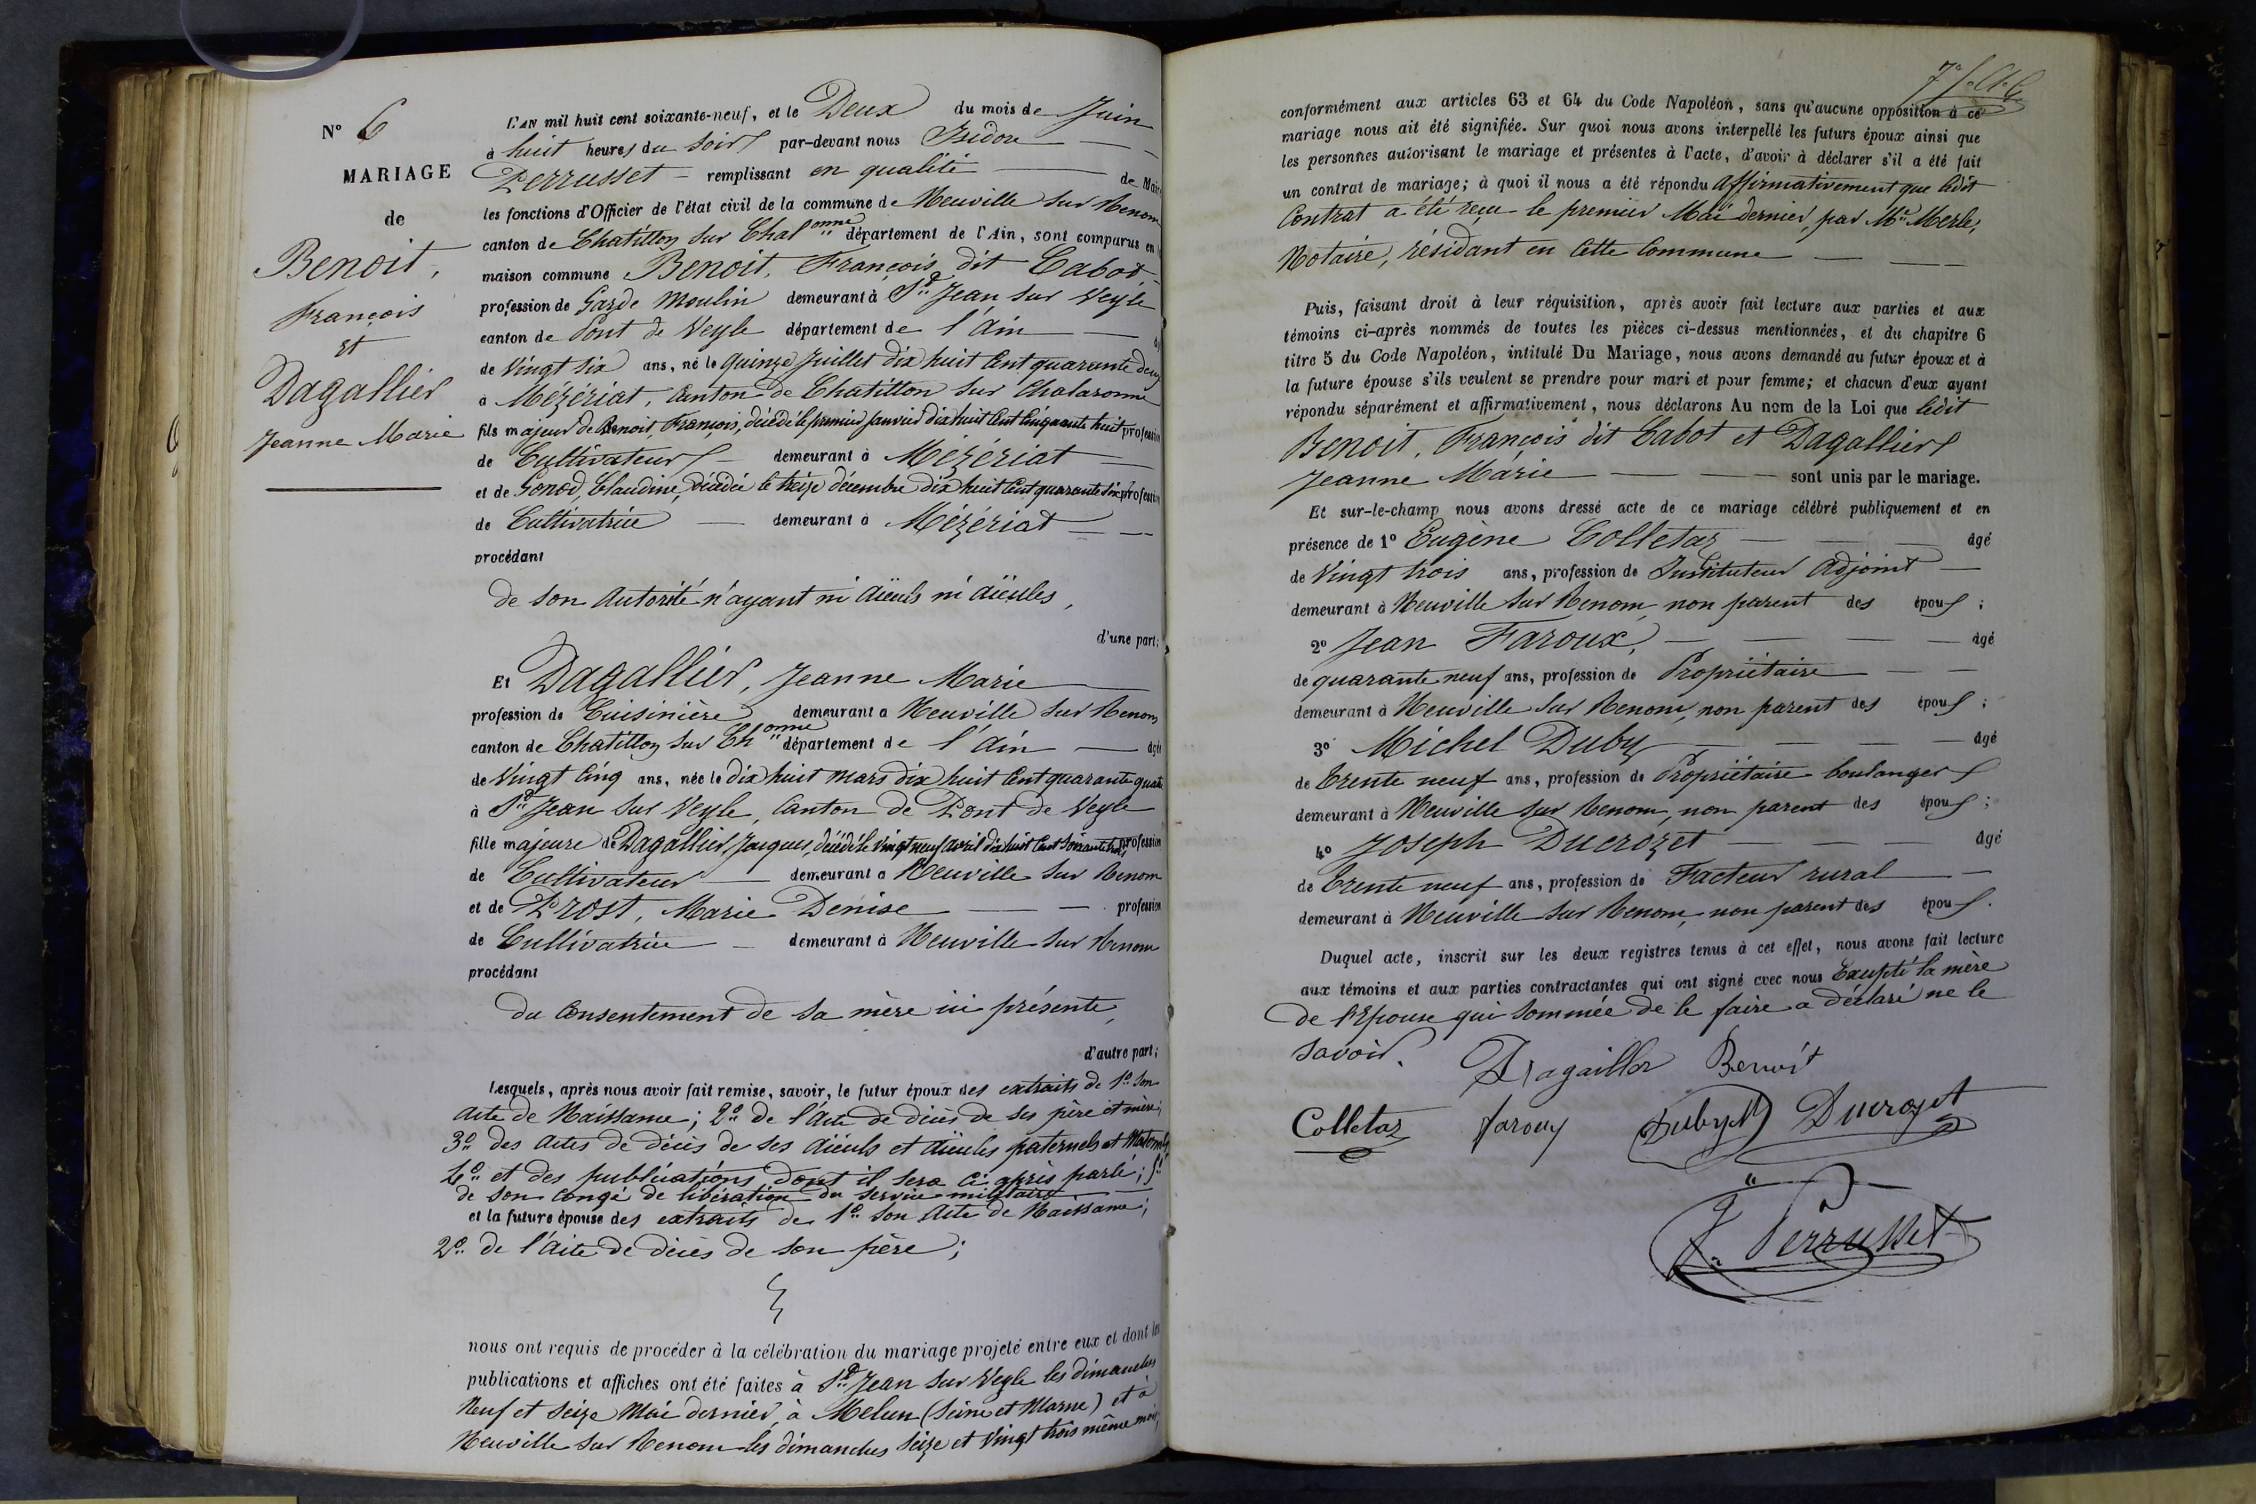 N° 6
MARIAGE
de
Benoit,
François
et
Dagallier
Jeanne Marie
L'AN mil huit cent soixante-neuf, et le Deux du mois de Juin
à huit heures du soir par-devant nous Isidore
Perrusset remplissant en qualité de Maire
les fonctions d'Officier de l'état civil de la commune de Neuville sur Renom
canton de Chatillon sur Chalonne département de l'Ain, sont comparus en
maison commune Benoit, François dit Cabot,
profession de Garde Moulin demeurant à St Jean sur Veyle
canton de Pont de Veyle département de l'Ain
de Vingt six ans, né le quinze Juillet dix huit Cent quarante deux
à Mézériat, Canton de Chatillon sur Chalaronne
fils majeur de Benoit, François, décédé le premier Janvier dix huit Cent Cinquante huit profession
de Cultivateur demeurant à Mézériat
et de Gonod, Claudine, décédée le treize décembre dix huit Cent quarante six profession
de Cultivatrice demeurant à Mézériat
procédant
de son Autorité n'ayant ni aïeuls ni aïeules,
d'une part;
Et Dagallier, Jeanne Marie
profession de Cuisinière demeurant a Neuville sur Renom
canton de Chatillon sur Chonne département de l'Ain âgée
de Vingt Cinq ans, née le dix huit Mars dix huit Cent quarante quatre
à St Jean sur Veyle, Canton de Pont de Veyle
fille majeure de Dagallier, Jacques, décédé le Vingt neuf avril dix huit Cent Soixante trois profession
de Cultivateur demeurant a Neuville sur Renom
et de Prost, Marie Denise profession
de Cultivatrice demeurant à Neuville sur Renom
procédant
du Consentement de sa mère ici présente,
d'autre part;
Lesquels, après nous avoir fait remise, savoir, le futur époux des extraits de 1° Son
Acte de Naissance; 2° de l'Acte de décès de ses père et mère;
3° des Actes de décès de ses Aïeuls et Aïeules paternels et Maternels
4° et des publications dont il sera Ci après parlé; 5°
de son Congé de libération du service militaire
et la future épouse des extraits de 1° Son Acte de Naissance;
2° de l'Acte de décès de son père;
nous ont requis de procéder à la célébration du mariage projeté entre eux et dont les
publications et affiches ont été faites à St Jean sur Veyle les dimanches
Neuf et Seize Mai dernier, à Melun (Seine et Marne) et à
Neuville sur Renom les dimanches Seize et Vingt trois même mois,
conformément aux articles 63 et 64 du Code Napoléon, sans qu'aucune opposition à ce
mariage nous ait été signifiée. Sur quoi nous avons interpellé les futurs époux ainsi que
les personnes autorisant le mariage et présentes à l'acte, d'avoir à déclarer s'il a été fait
un contrat de mariage; à quoi il nous a été répondu Affirmativement que ledit
Contrat a été reçu le premier Mai dernier, par Me Merle,
Notaire, résidant en Cette Commune
Puis, faisant droit à leur réquisition, après avoir fait lecture aux parties et aux
témoins ci-après nommés de toutes les pièces ci-dessus mentionnées, et du chapitre 6
titre 5 du Code Napoléon, intitulé Du Mariage, nous avons demandé au futur époux et à
la future épouse s'ils veulent se prendre pour mari et pour femme; et chacun d'eux ayant
répondu séparément et affirmativement, nous déclarons Au nom de la Loi que ledit
Benoit, François dit Cabot et Dagallier
Jeanne Marie sont unis par le mariage.
Et sur-le-champ nous avons dressé acte de ce mariage célébré publiquement et en
présence de 1° Eugène Colletaz âgé
de Vingt trois ans, profession de Instituteur Adjoint
demeurant à Neuville sur Renom, non parent des époux;
2° Jean Faroux, âgé
de quarante neuf ans, profession de Propriétaire
demeurant à Neuville sur Renom, non parent des époux;
3° Michel Duby âgé
de trente neuf ans, profession de Propriétaire boulanger
demeurant à Neuville sur Renom, non parent des époux;
4° Joseph Ducrozet âgé
de trente neuf ans, profession de Facteur rural
demeurant à Neuville sur Renom, non parent des époux.
Duquel acte, inscrit sur les deux registres tenus à cet effet, nous avons fait lecture
aux témoins et aux parties contractantes qui ont signé avec nous Excepté la mère
de l'Epouse qui sommée de le faire a déclaré ne le
savoir.
Dagaillir Benoit
Colletaz faroux Duby M Ducrozet
Perrusset